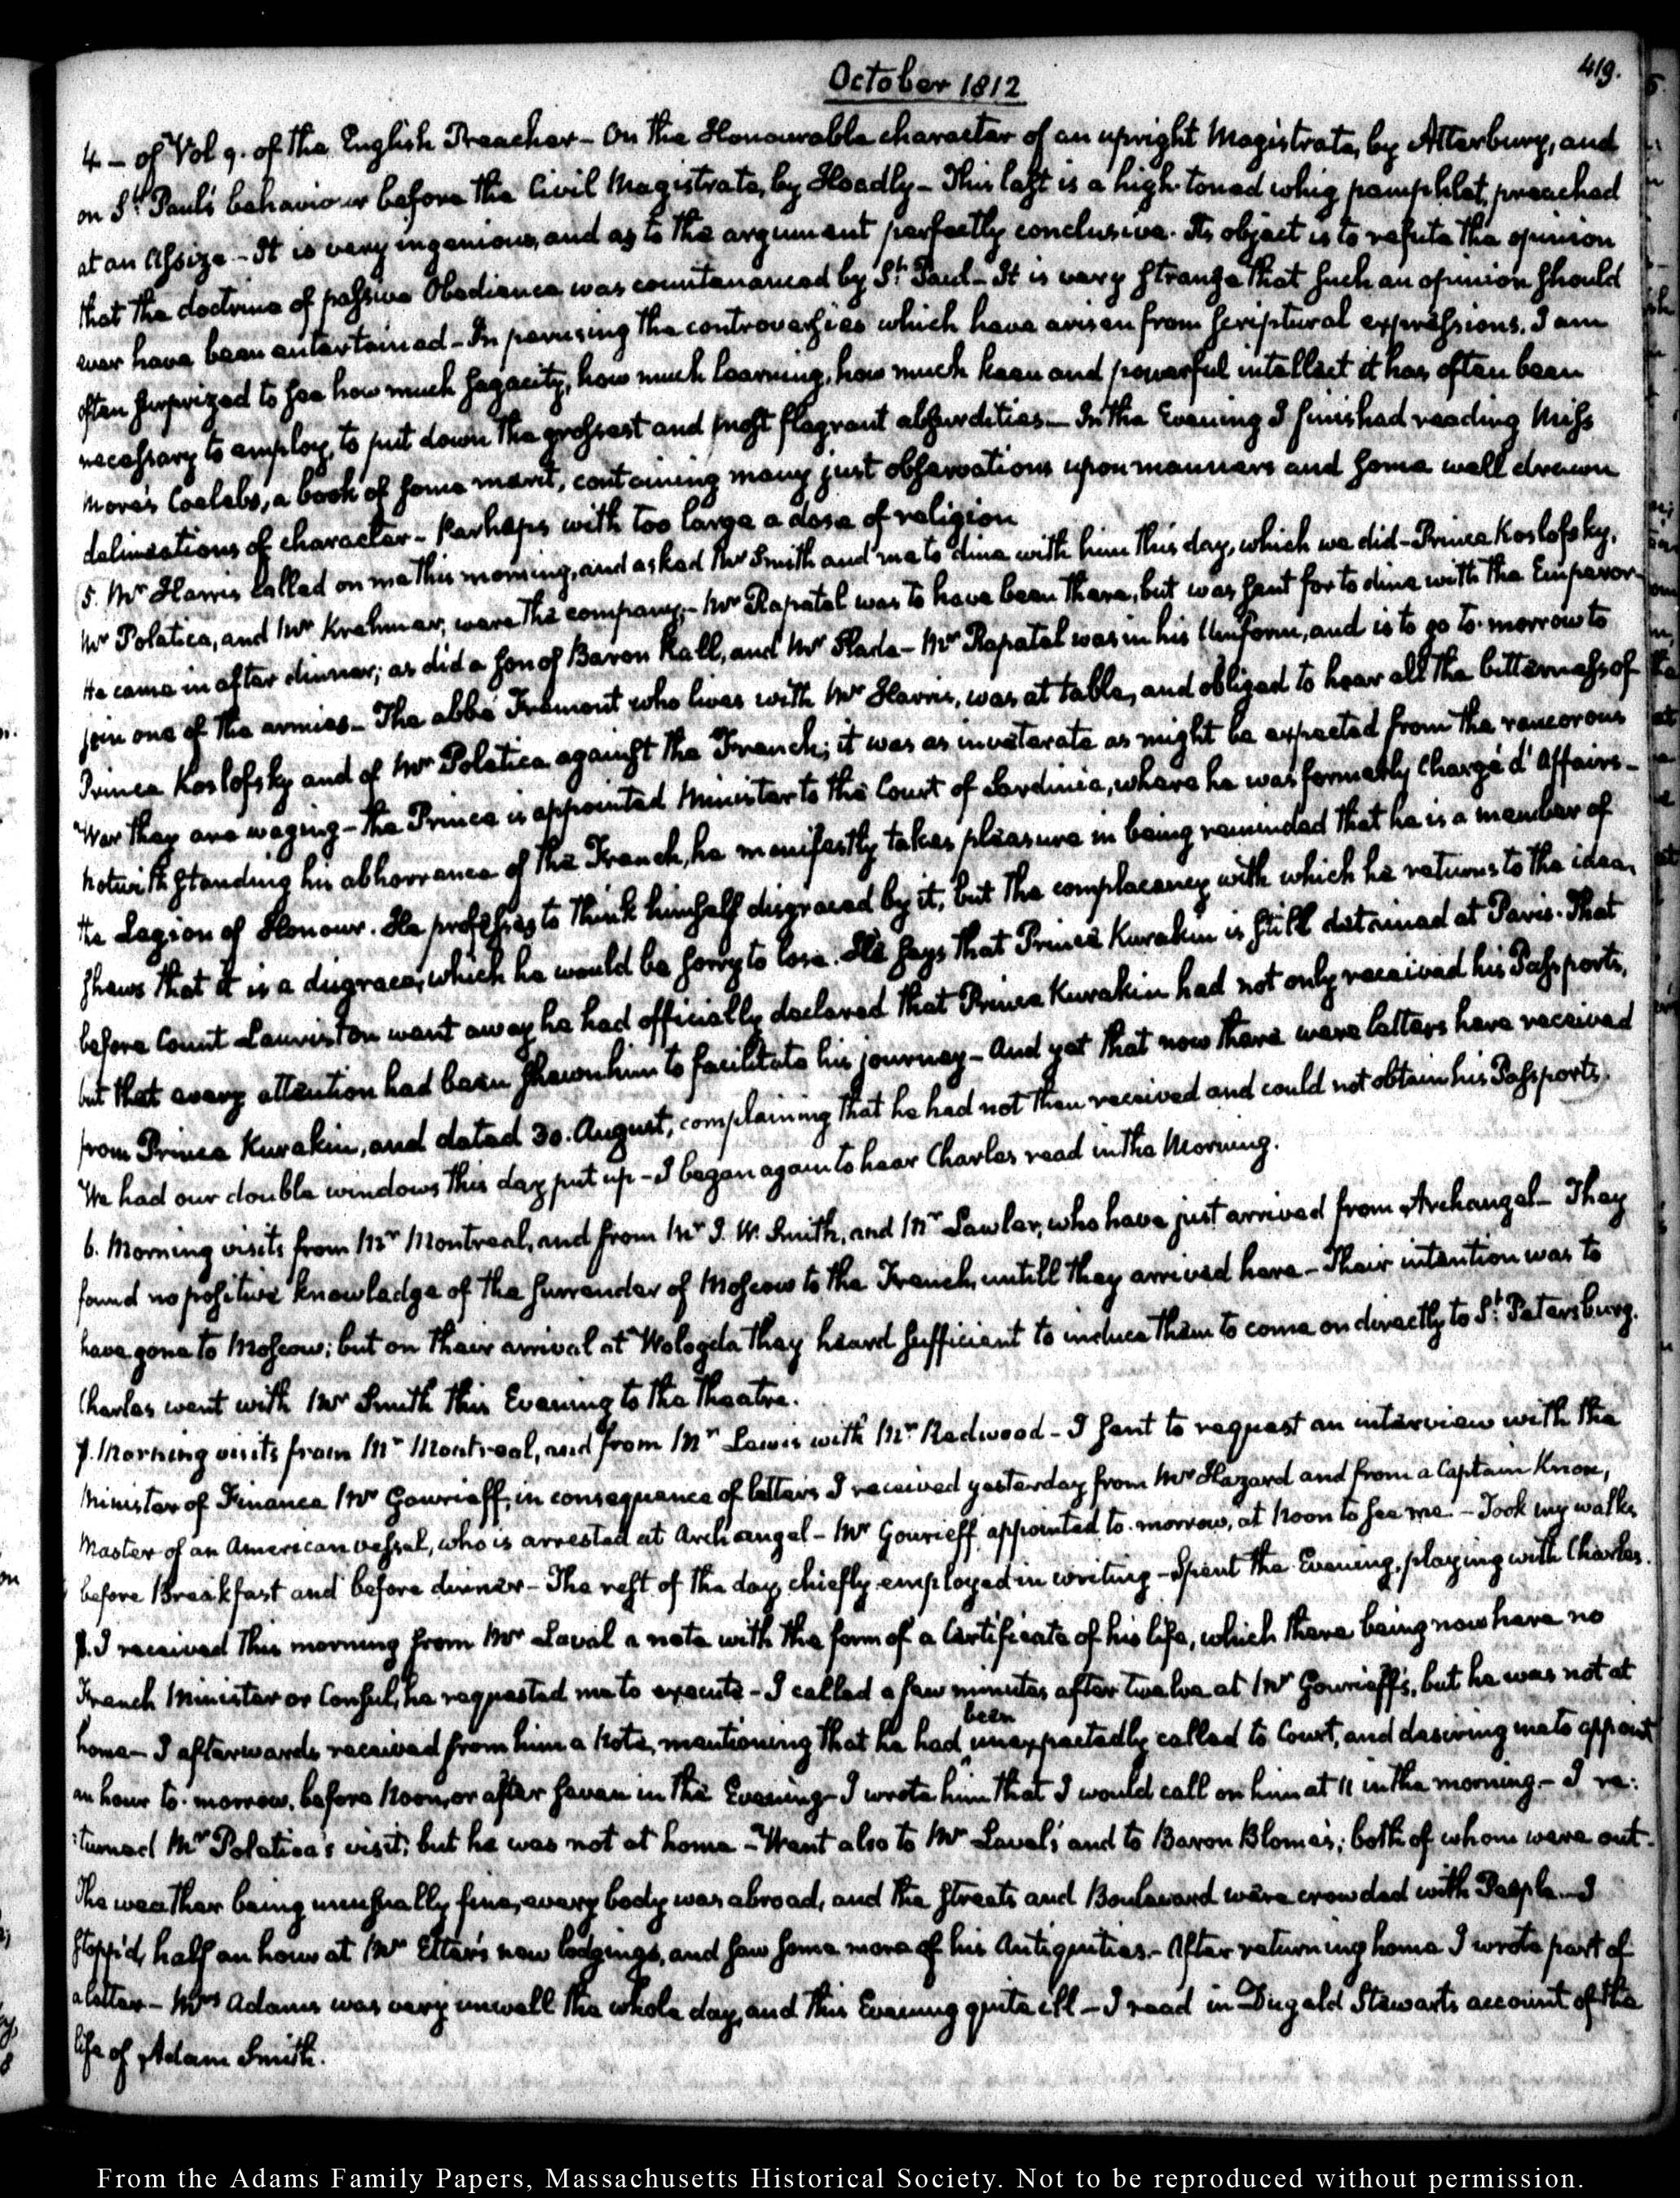 419.
October 1812
4 - of Vol 9. of the English Preacher - On the Honourable character of an upright Magistrate, by Atterbury, and
on St. Paul's behaviour before the Civil Magistrate, by Hoadly - This last is a high-toned whig pamphlet, preached
at an Assize - It is very ingenious, and as to the argument perfectly conclusive. Its object is to refute the opinion
that the doctrine of passive Obedience was countenanced by St. Paul - It is very strange that such an opinion should
ever have been entertained - In perusing the controversies which have arisen from scriptural expressions, I am
often surprized to see how much sagacity, how much learning, how much keen and powerful intellect it has often been
necessary to employ, to put down the grossest and most flagrant absurdities - In the Evening I finished reading Miss
More's Coelebs, a book of some merit, containing many just observations upon manners and some well drawn
delineations of character - Perhaps with too large a dose of religion
5. Mr Harris called on me this morning, and asked Mr Smith and me to dine with him this day, which we did - Prince Koslofsky,
Mr Poletica, and Mr Krehmer, were the company - Mr Rapatel was to have been there, but was sent for to dine with the Emperor -
He came in after dinner; as did a son of Baron Rall, and Mr Slade - Mr Rapatel was in his Uniform, and is to go to-morrow to
join one of the armies - The abbé Fremont who lives with Mr Harris, was at table, and obliged to hear all the bitterness of
Prince Koslofsky and of Mr Poletica against the French; it was as inveterate as might be expected from the rancorous
War they are waging - The Prince is appointed Minister to the Court of Sardinia, where he was formerly Chargé d'Affairs -
Notwithstanding his abhorrence of the French, he manifestly takes pleasure in being reminded that he is a member of
the Legion of Honour. He professes to think himself disgraced by it, but the complacency with which he returns to the idea,
shews that it is a disgrace, which he would be sorry to lose. He says that Prince Kurakin is still detained at Paris. That
before Count Lauriston went away he had officially declared that Prince Kurakin had not only received his Passports,
but that every attention had been shewn him to facilitate his journey - And yet that now there were letters here received
from Prince Kurakin, and dated 30. August, complaining that he had not then received and could not obtain his Passports.
We had our double windows this day put up - I began again to hear Charles read in the Morning.
6. Morning visits from Mr Montreal, and from Mr J. W. Smith, and Mr Lawler, who have just arrived from Archangel - They
found no positive knowledge of the surrender of Moscow to the French, untill they arrived here - Their intention was to
have gone to Moscow; but on their arrival at Wologda they heard sufficient to induce them to come on directly to St. Petersburg.
Charles went with Mr Smith this Evening to the Theatre.
7. Morning visits from Mr Montreal, and from Mr Lewis with Mr Redwood - I sent to request an interview with the
Minister of Finance Mr Gourieff, in consequence of letters I received yesterday from Mr Hazard and from a Captain Knox,
Master of an American vessel, who is arrested at Archangel - Mr Gourieff appointed to-morrow, at Noon to see me - Took my walks
before Breakfast and before dinner - The rest of the day, chiefly employed in writing - Spent the Evening, playing with Charles.
8. I received this morning from Mr Laval a note with the form of a Certificate of his life, which there being now here no
French Minister or Consul, he requested me to execute - I called a few minutes after twelve at Mr Gourieff's, but he was not at
home - I afterwards received from him a Note, mentioning that he had been unexpectedly called to Court, and desiring me to appoint
an hour to-morrow, before Noon, or after seven in the Evening - I wrote him that I would call on him at 11 in the morning - I re:
:turned Mr Poletica's visit; but he was not at home - Went also to Mr Laval's and to Baron Blome's; both of whom were out.
The weather being unusually fine, every body was abroad, and the streets and Boulevard were crowded with People - I
stopp'd half an hour at Mr Etter's new lodgings, and saw some more of his Antiquities - After returning home I wrote part of
a letter - Mrs Adams was very unwell the whole day, and this Evening quite ill - I read in Dugald Stewarts account of the
life of Adam Smith.
From the Adams Family Papers, Massachusetts Historical Society. Not to be reproduced without permission.